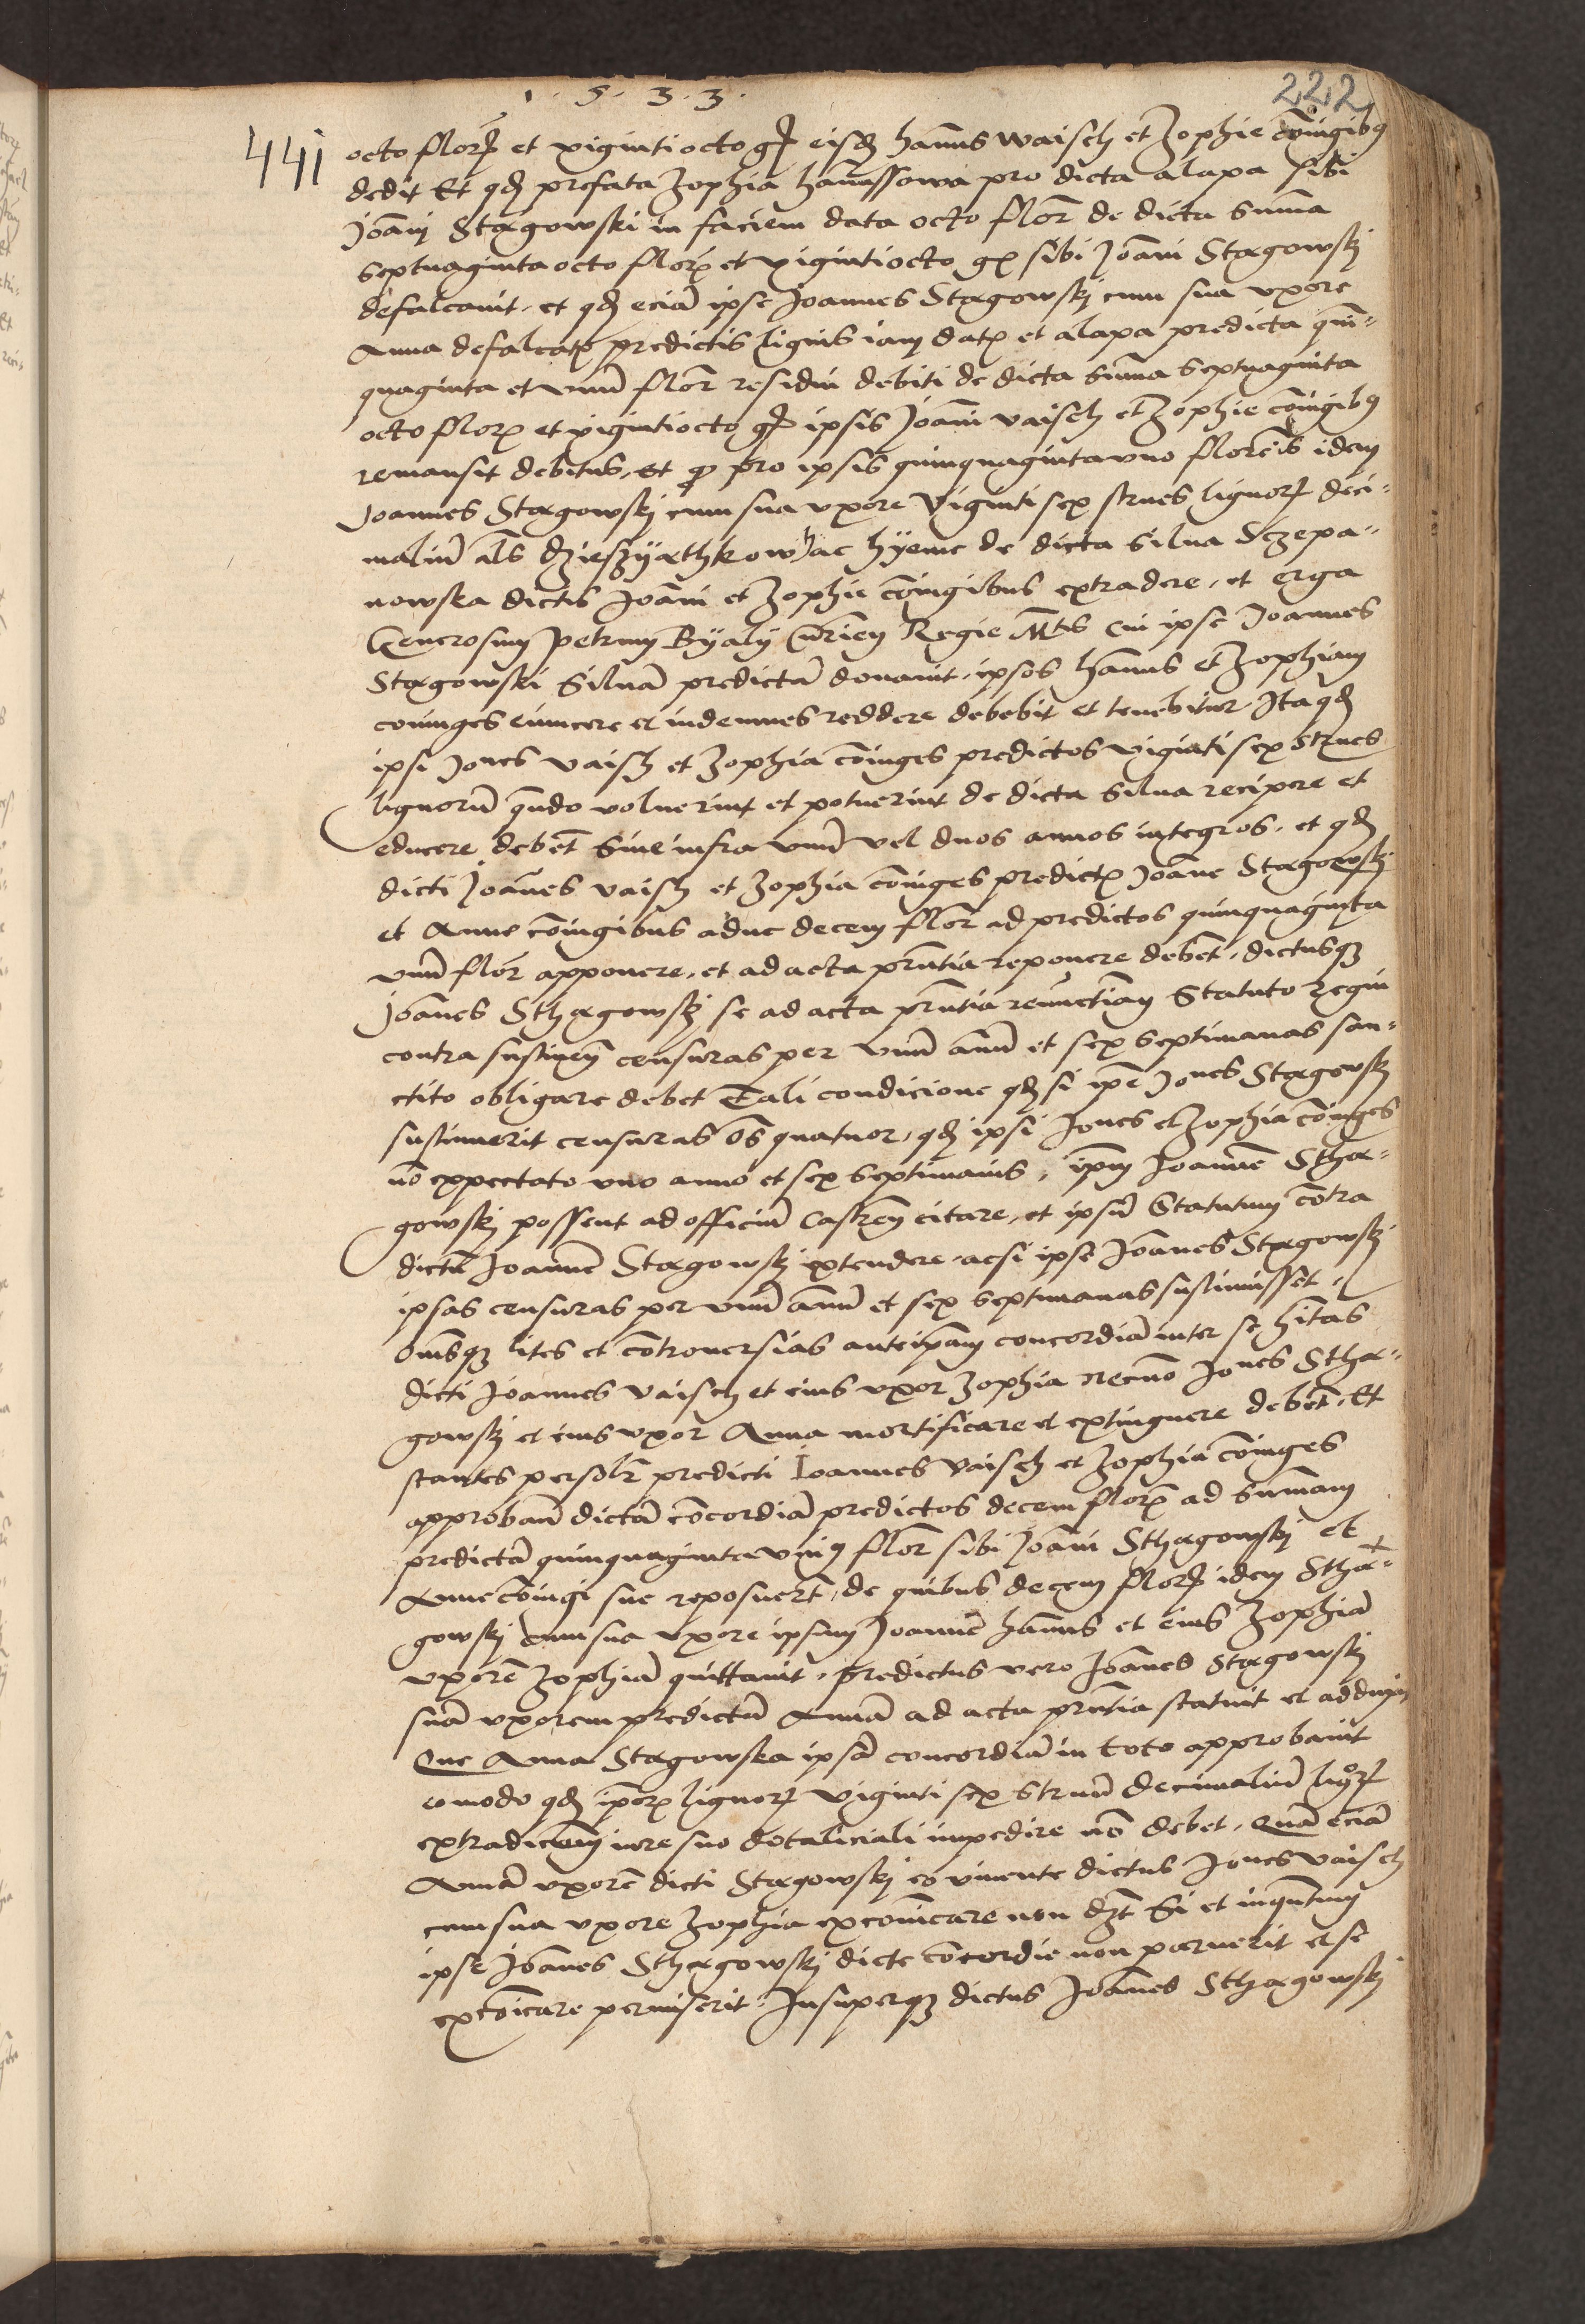 1 · 5 · 3 · 3 ·
222
441
octo florꝭ et vigintiocto gꝭ eisdē hanus waisch et Zophie cōiugibꝰ
dedit Et qđ prefata Zophia hanussowa pro dicta alapa sibi
Joāni Stargowski in faciem data octo flor̄ de dicta sum̄a
septuaginta octo florꝭ et vigintiocto gꝭ sibi Joāni Stargowskj
defalcauit, et qđ eciā ipse Joannes Stargowskj cum sua vxore
Anna defalcatꝭ predictis lignis iam datꝭ et alapa predicta quin-
quaginta et vnū flor̄ residui debiti de dicta sum̄a septuaginta
octo florꝭ et vigintiocto gꝭ ipsis Joāni vaisch et Zophie cōiugibꝰ
remansit debitus, Et ꝙ pro ipsis quinquagintavno florēis idem
Joannes Stargowskj cum sua vxore vigintisex strues lignorꝭ deci-
maliū als dzieszyathkow hac hyeme de dicta silua Sczepa-
nowska dictis Joāni et Zophie cōiugibus extradere, et erga
Generosum Petrum Byaly Curien̄ Regie Mtis cui ipse Joannes
Stargowski siluā predictā donauit, ipsos hanus et Zophiam
coniuges euincere et indemnes reddere debebit et tenebitur Ita qđ
ipsi Joñes vaisch et Zophia cōiuges predictos vigintisex strues
lignorū qn̄do voluerint et potuerint de dicta silua recipere et
educere debēt siue infra vnū vel duos annos integros, et qđ
dicti Joānes vaisch et Zophia cōiuges predictꝭ Joāne Stargowskj
et Anne cōiugibus aduc decem flor̄ ad predictos quinquaginta
vnū flor̄ apponere, et ad acta pn̄tia reponere debēt, dictusqꝫ
Joānes Sthargowskj se ad acta pn̄tia Statuto regni
contra sustineñ censuras per vnū annū et sex septimanas san-
ctito obligare debet Tali condicione qđ si ipē Joñes Stargowskj
sustinuerit censuras ōs quatuor, qđ ipsi Joñes et Zophia cōiuges
nō expectato vno anno et sex septimanis, ipm̄ Joannē Sthar-
gowskj possent ad officiū Castreñ citare, et ipsū Statutum cōtra
dictū Joannē Stargowskj extendere, acsi ipse Joānes Stargowskj
ipsas censuras per vnū annū et sex septimanas sustinuisset,
Om̄sqꝫ lites et cōtrouersias anteipsam concordiā inter se hītas
dicti Joannes vaisch et eius vxor Zophia necnō Joñes Sthar-
gowskj et eius vxor Anna mortificare et extinguere debēt, Et
stantes persolr̄ predicti Joannes vaisch et Zophia cōiuges
approbanī dictā cōcordiā predictos decem florꝭ ad sum̄am
predictā quinquagintavniꝰ flor̄ sibi Joāni Sthargowskj et
Anne cōiugi sue reposuert̄, de quibus decem florꝭ idem Sthar-
gowskj cum sua vxore ipsum Joannē hanus et eius Zophiā
vxorē Zophiā quittauit, predictus vero Joānes Stargowskj
suā vxorem predictā Annā ad acta pn̄tia statuit et adduxit
Que Anna Stargowska ipsā concordiā in toto approbauit
eomodo qđ ipsorꝭ lignorꝭ vigintisex struū decimaliū lignorꝭ
extradicōem iure suo dotaliciali impedire nō debet, Quā eciā
Annā vxorē dicti Stargowskj eo viuente dictus Joñes vaisch
cum sua vxore Zophia excōicare non dz̄t Si et inqn̄tum
ipse Joānes Sthargowskj dicte concordie non paruerit et se
excōicare permiserit, Insuperqꝫ dictus Joānes Sthargowskj